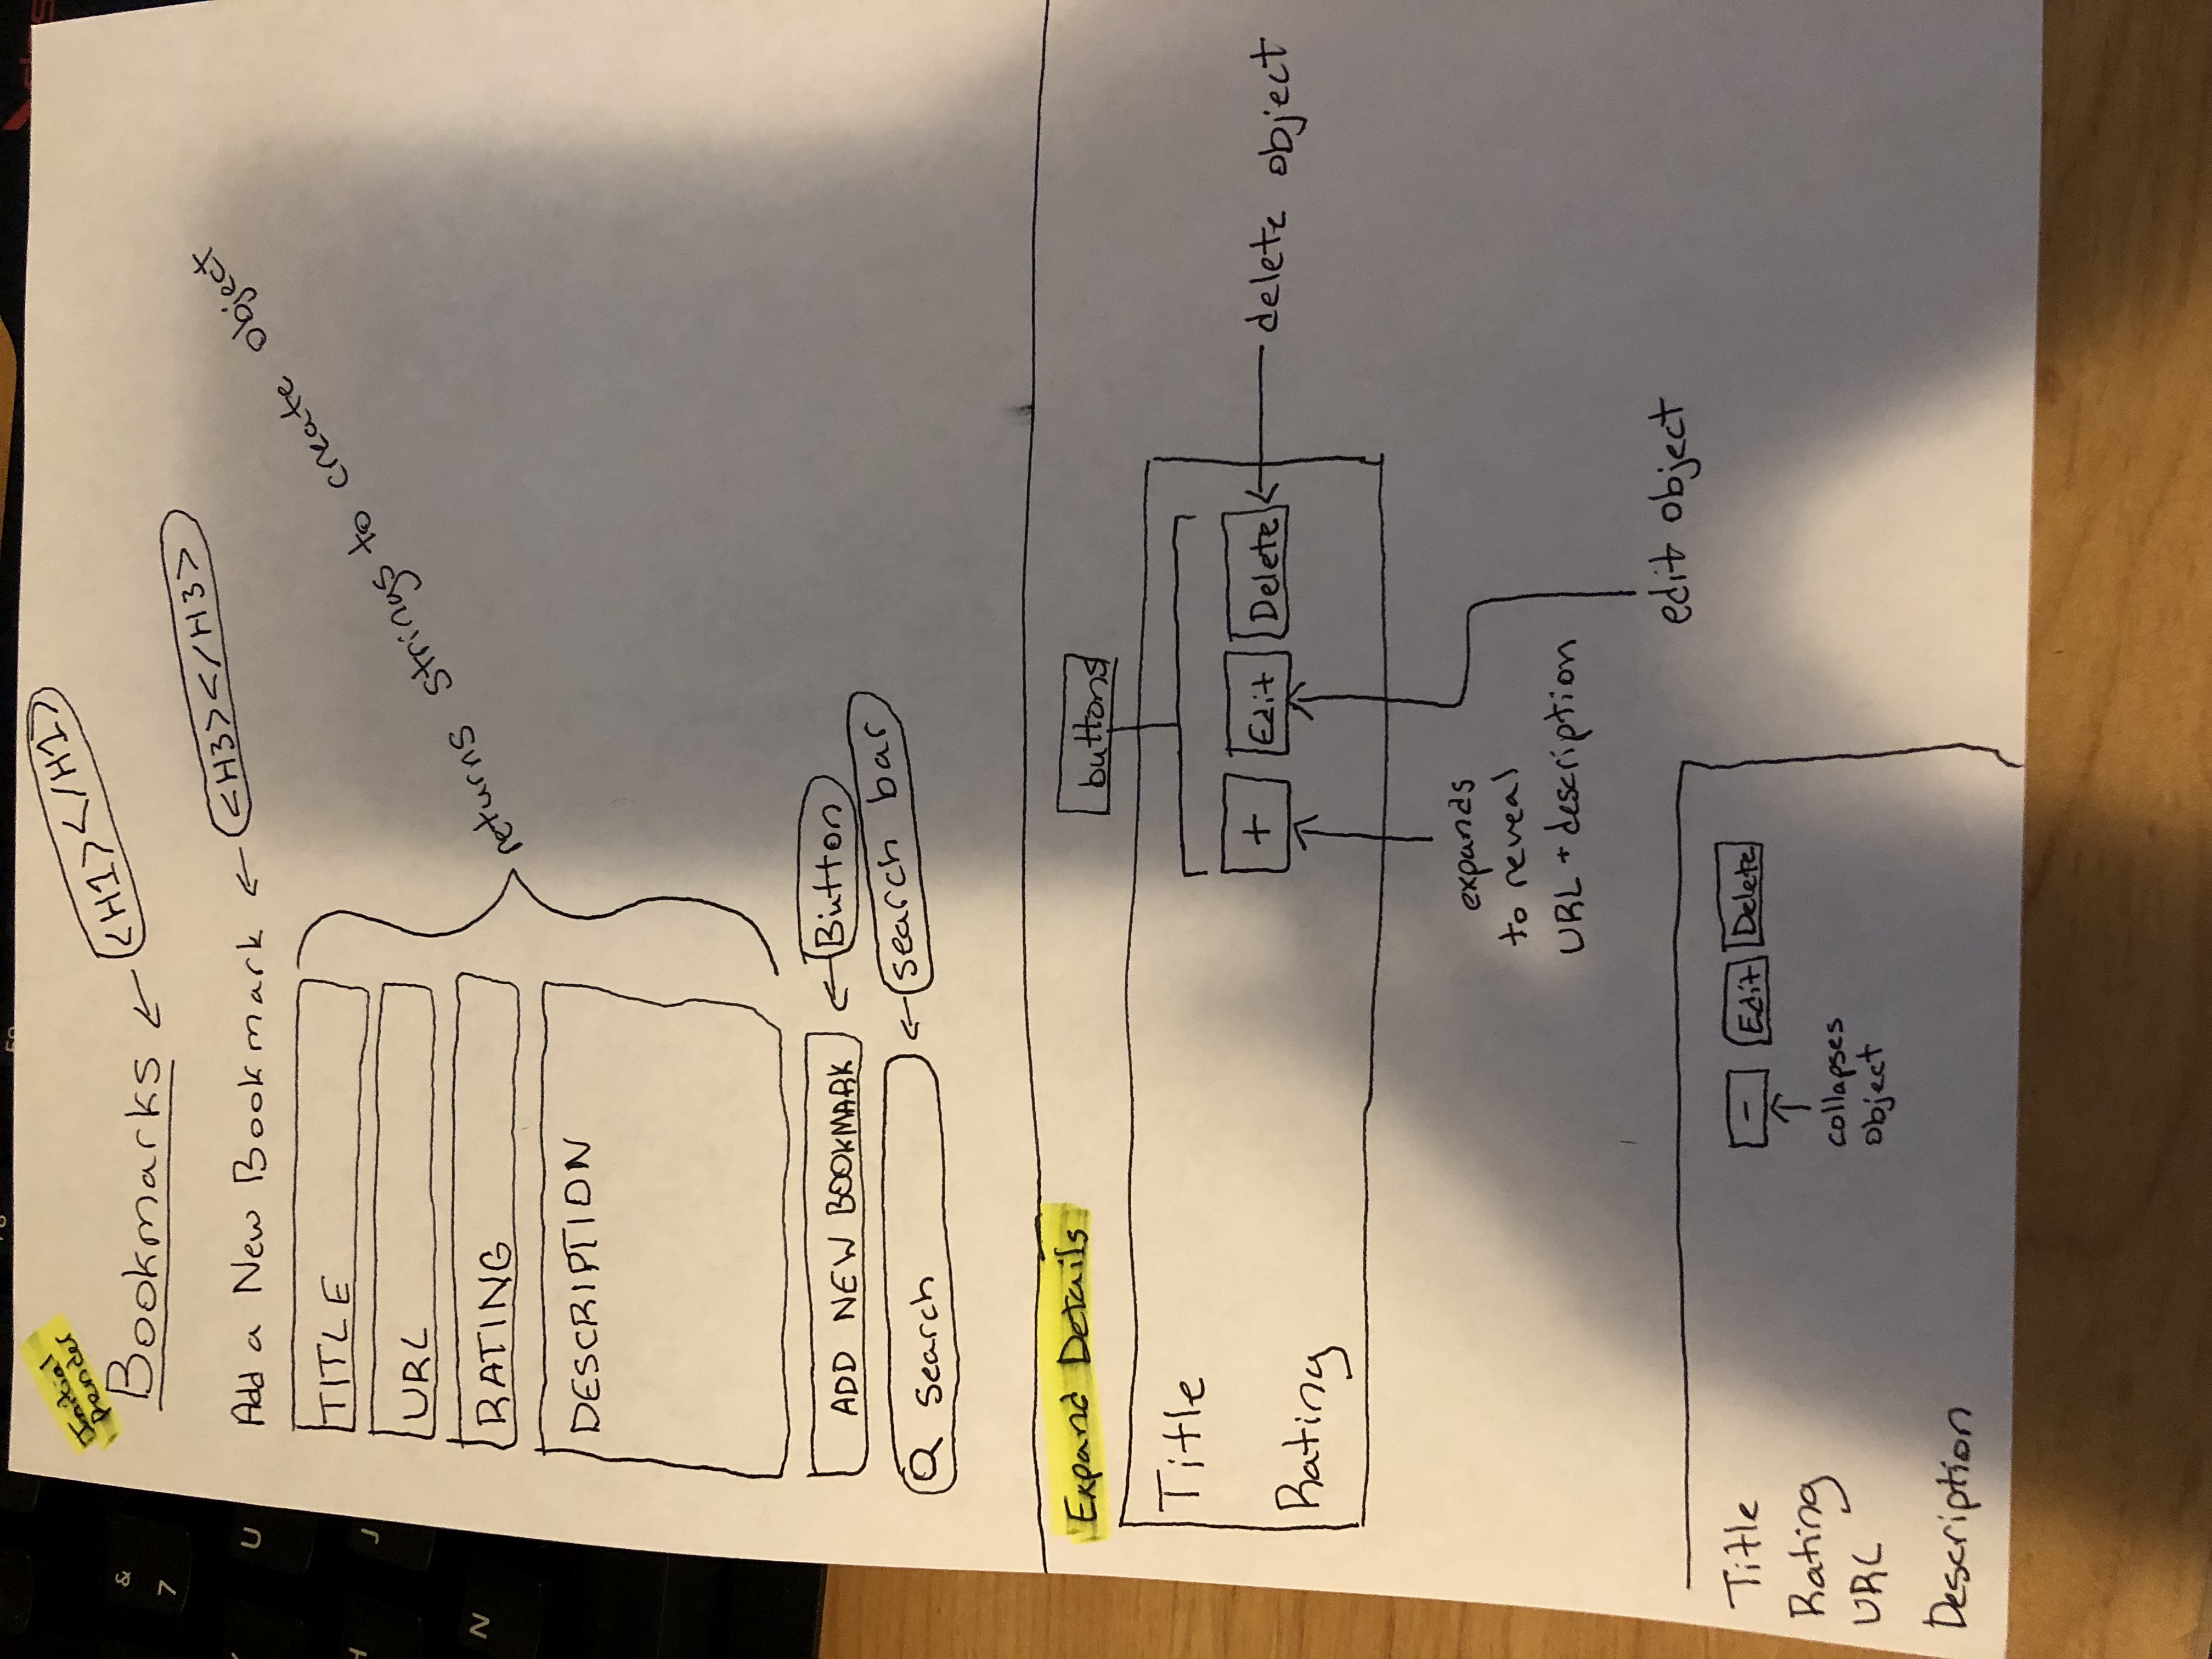 Initial
Render
Bookmarks
<H1></H1>
Add a New Bookmark
<H3></H3>
TITLE
URL
RATING
DESCRIPTION
returns strings to create object
ADD NEW BOOKMARK
Button
Search
search bar
Expand Details
buttons
Title
+
Edit
Delete
delete object
Rating
expands
to reveal
URL + description
edit object
Title
-
Edit
Delete
Rating
collapses
object
URL
Description
&
7
U
J
N